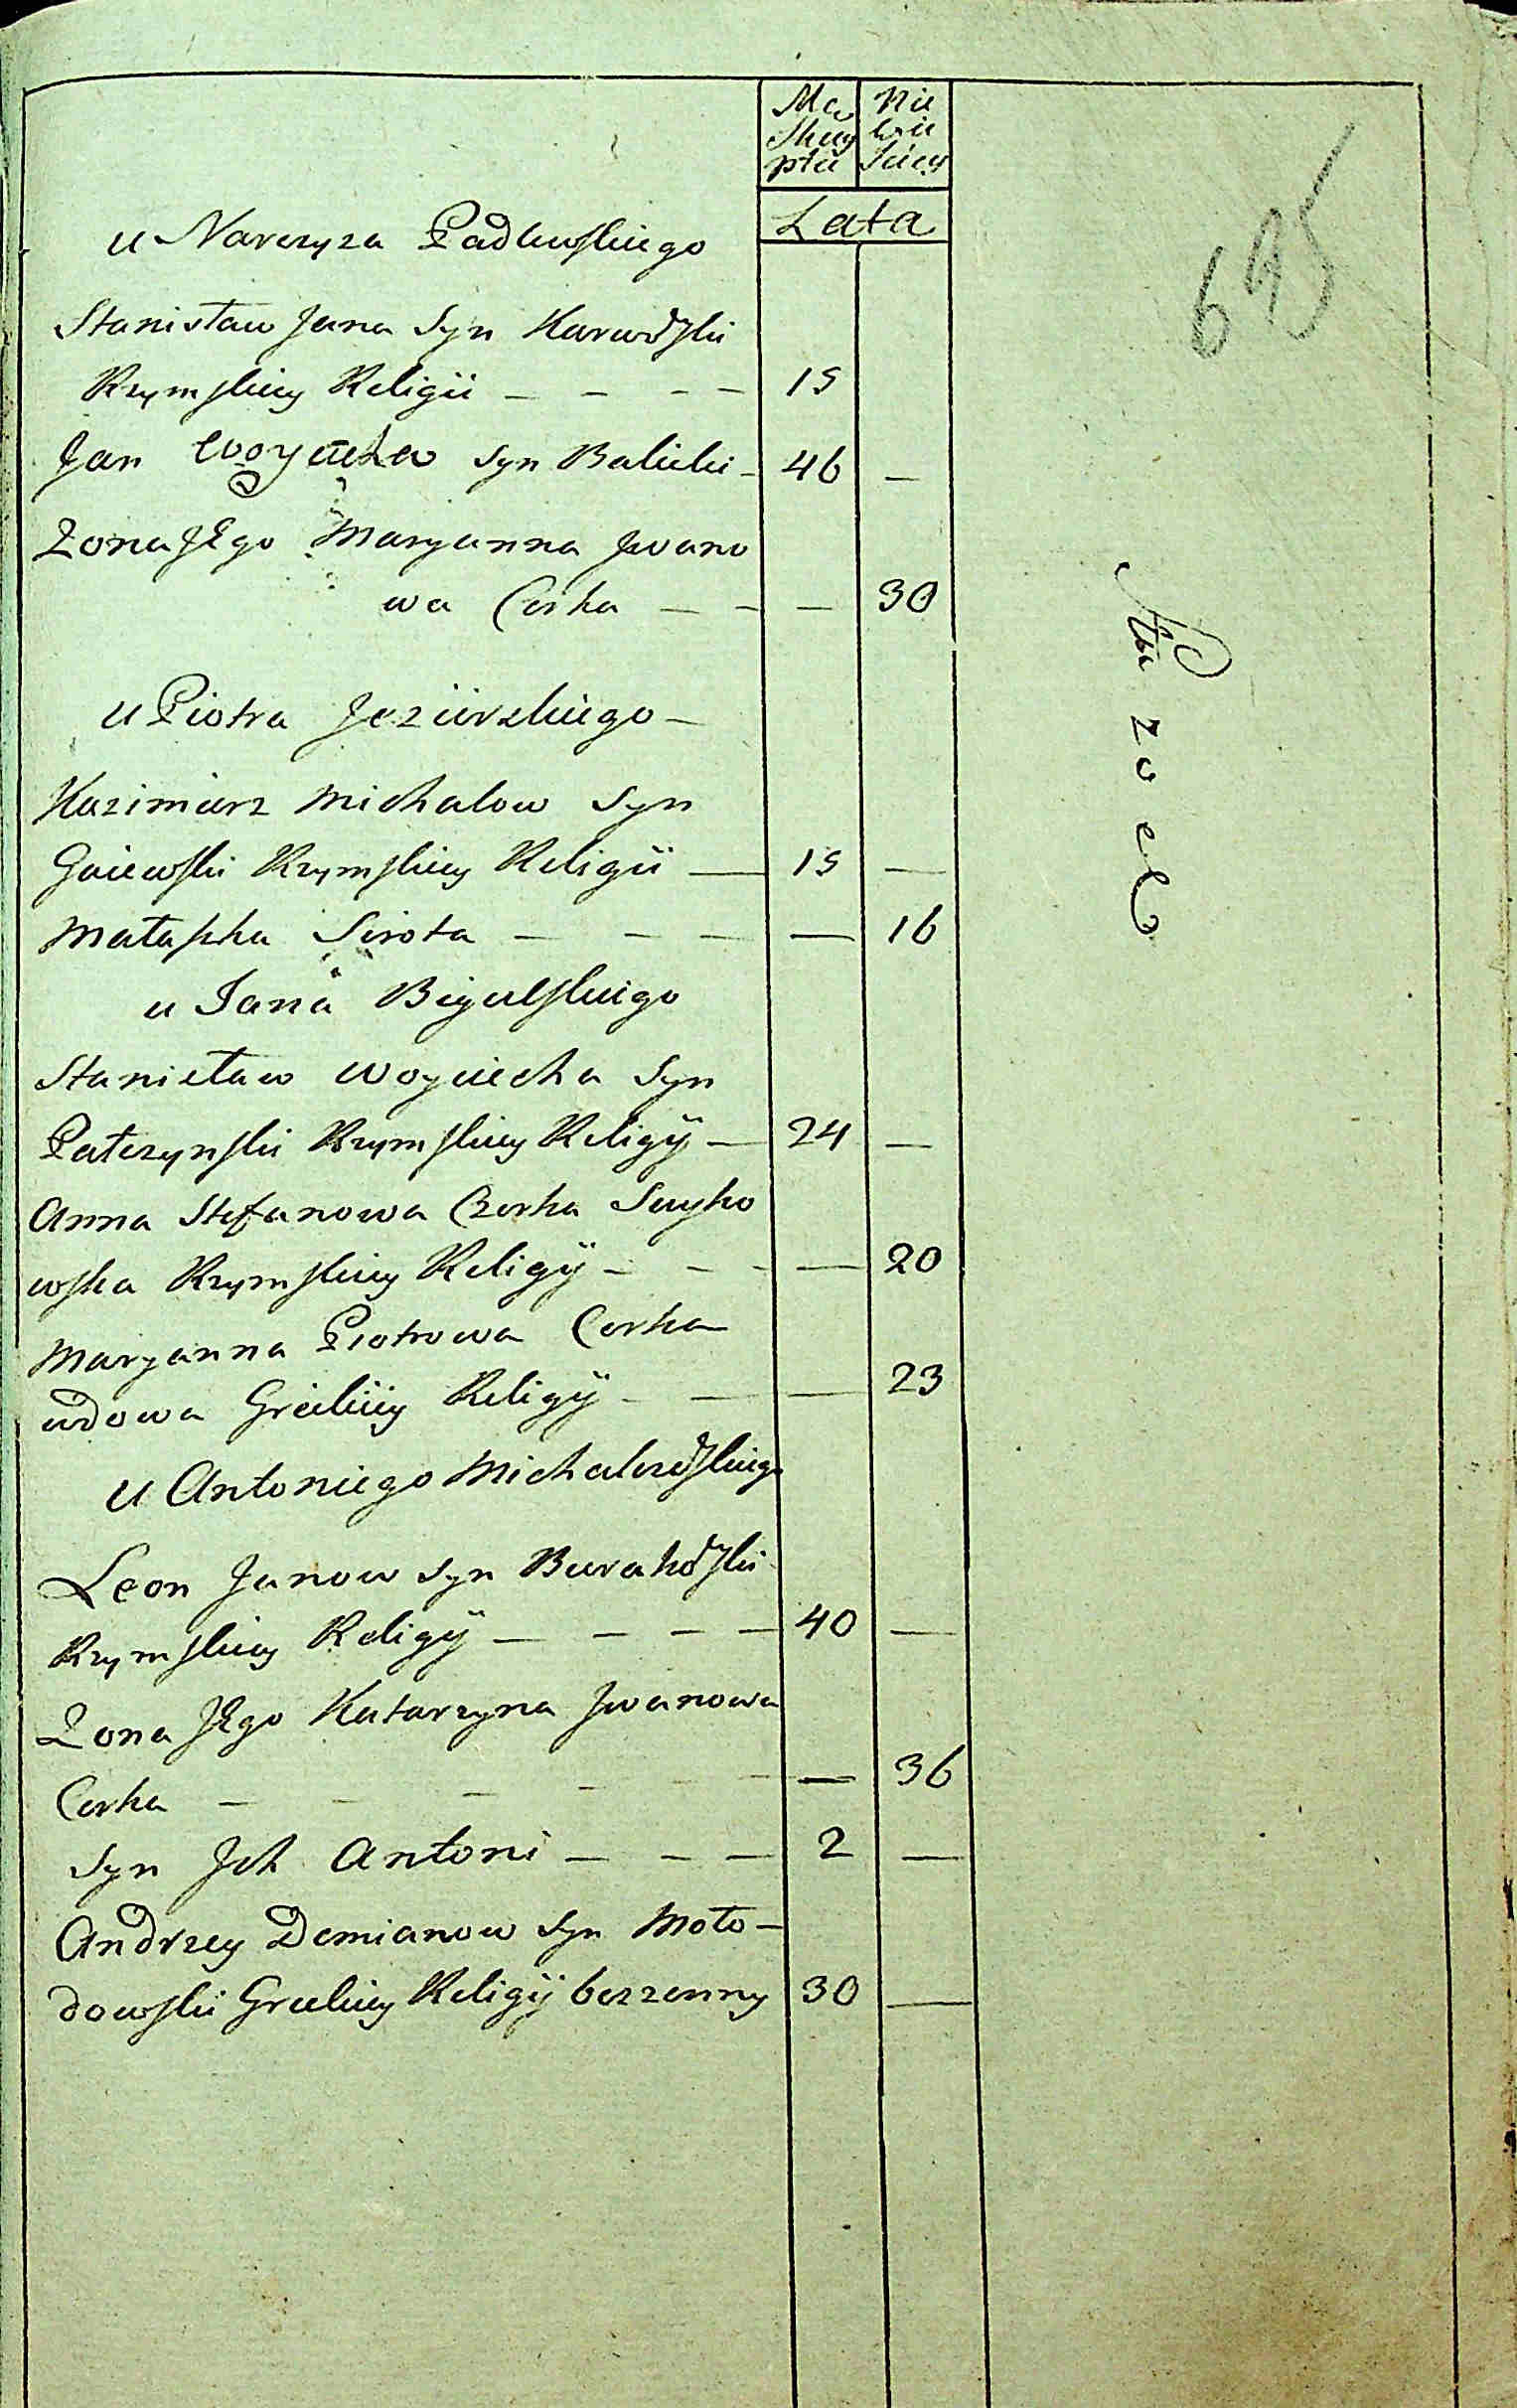 Mę Nie
skey wie
płci sciey
Lata
695
u Narcyza Padlewskiego
Stanisław Jana Syn Karwowski
Rzymskiey Religii — — — — 15
Jan Woyciecha syn Balicki — 46 —
Zona Jego Maryanna Iwano
wa Corka — — — 30
u Piotra Jezierskiego —
Kazimierz Michalow Syn
Gaiewski Rzymskiey Religii — 15 —
Mataszka Sirota — — — — 16
u Jana Bigulskiego
Stanisław Woyciecha Syn
Patczynski Rzymskiey Religij — 24 —
Anna Stefanowa Czorka
wska Rzymskiey Religij — — — — 20
Maryanna Piotrowa Corka
wdowa Greckiey Religij — — — 23
u Antoniego
Leon Janow syn Burakowski
Rzymskiey Religij — — — — 40 —
Zona Jego Katarzyna Iwanowa
Corka — — — — — — — 36
Syn Ich Antoni — — — 2 —
Andrzey Demianow Syn Moło-
dowski Greckiey Religij bezzenny 30 —